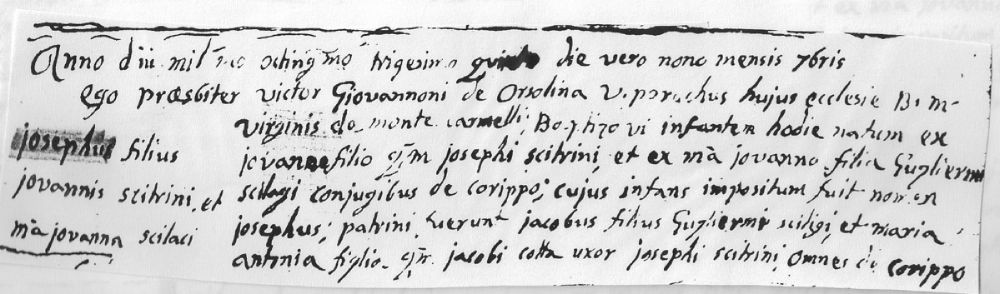 Anno dni mil mo octing mo trigesimo quinto die vero nono mensis 7bris
ego præsbiter victor Giovannoni de Orsolina v. parochus hujus ecclesie B. m.
virginis de monte carmelli; Baptizo vi infanten hodie natum ex
josephus filius jovane filio qm josephi scitrini, et ex mã jovanna filia Gugliermi
jovannis scitrini, et scilagi conjugibus de corippo; cujus infans impositum fuit nomen
mã jovanna scilaci josephus; patrini fuerunt jacobus filius Gugliermi sciligi, et maria
antonia figlia qm jacobi cotta uxor josephi scitrini, omnes de corippo